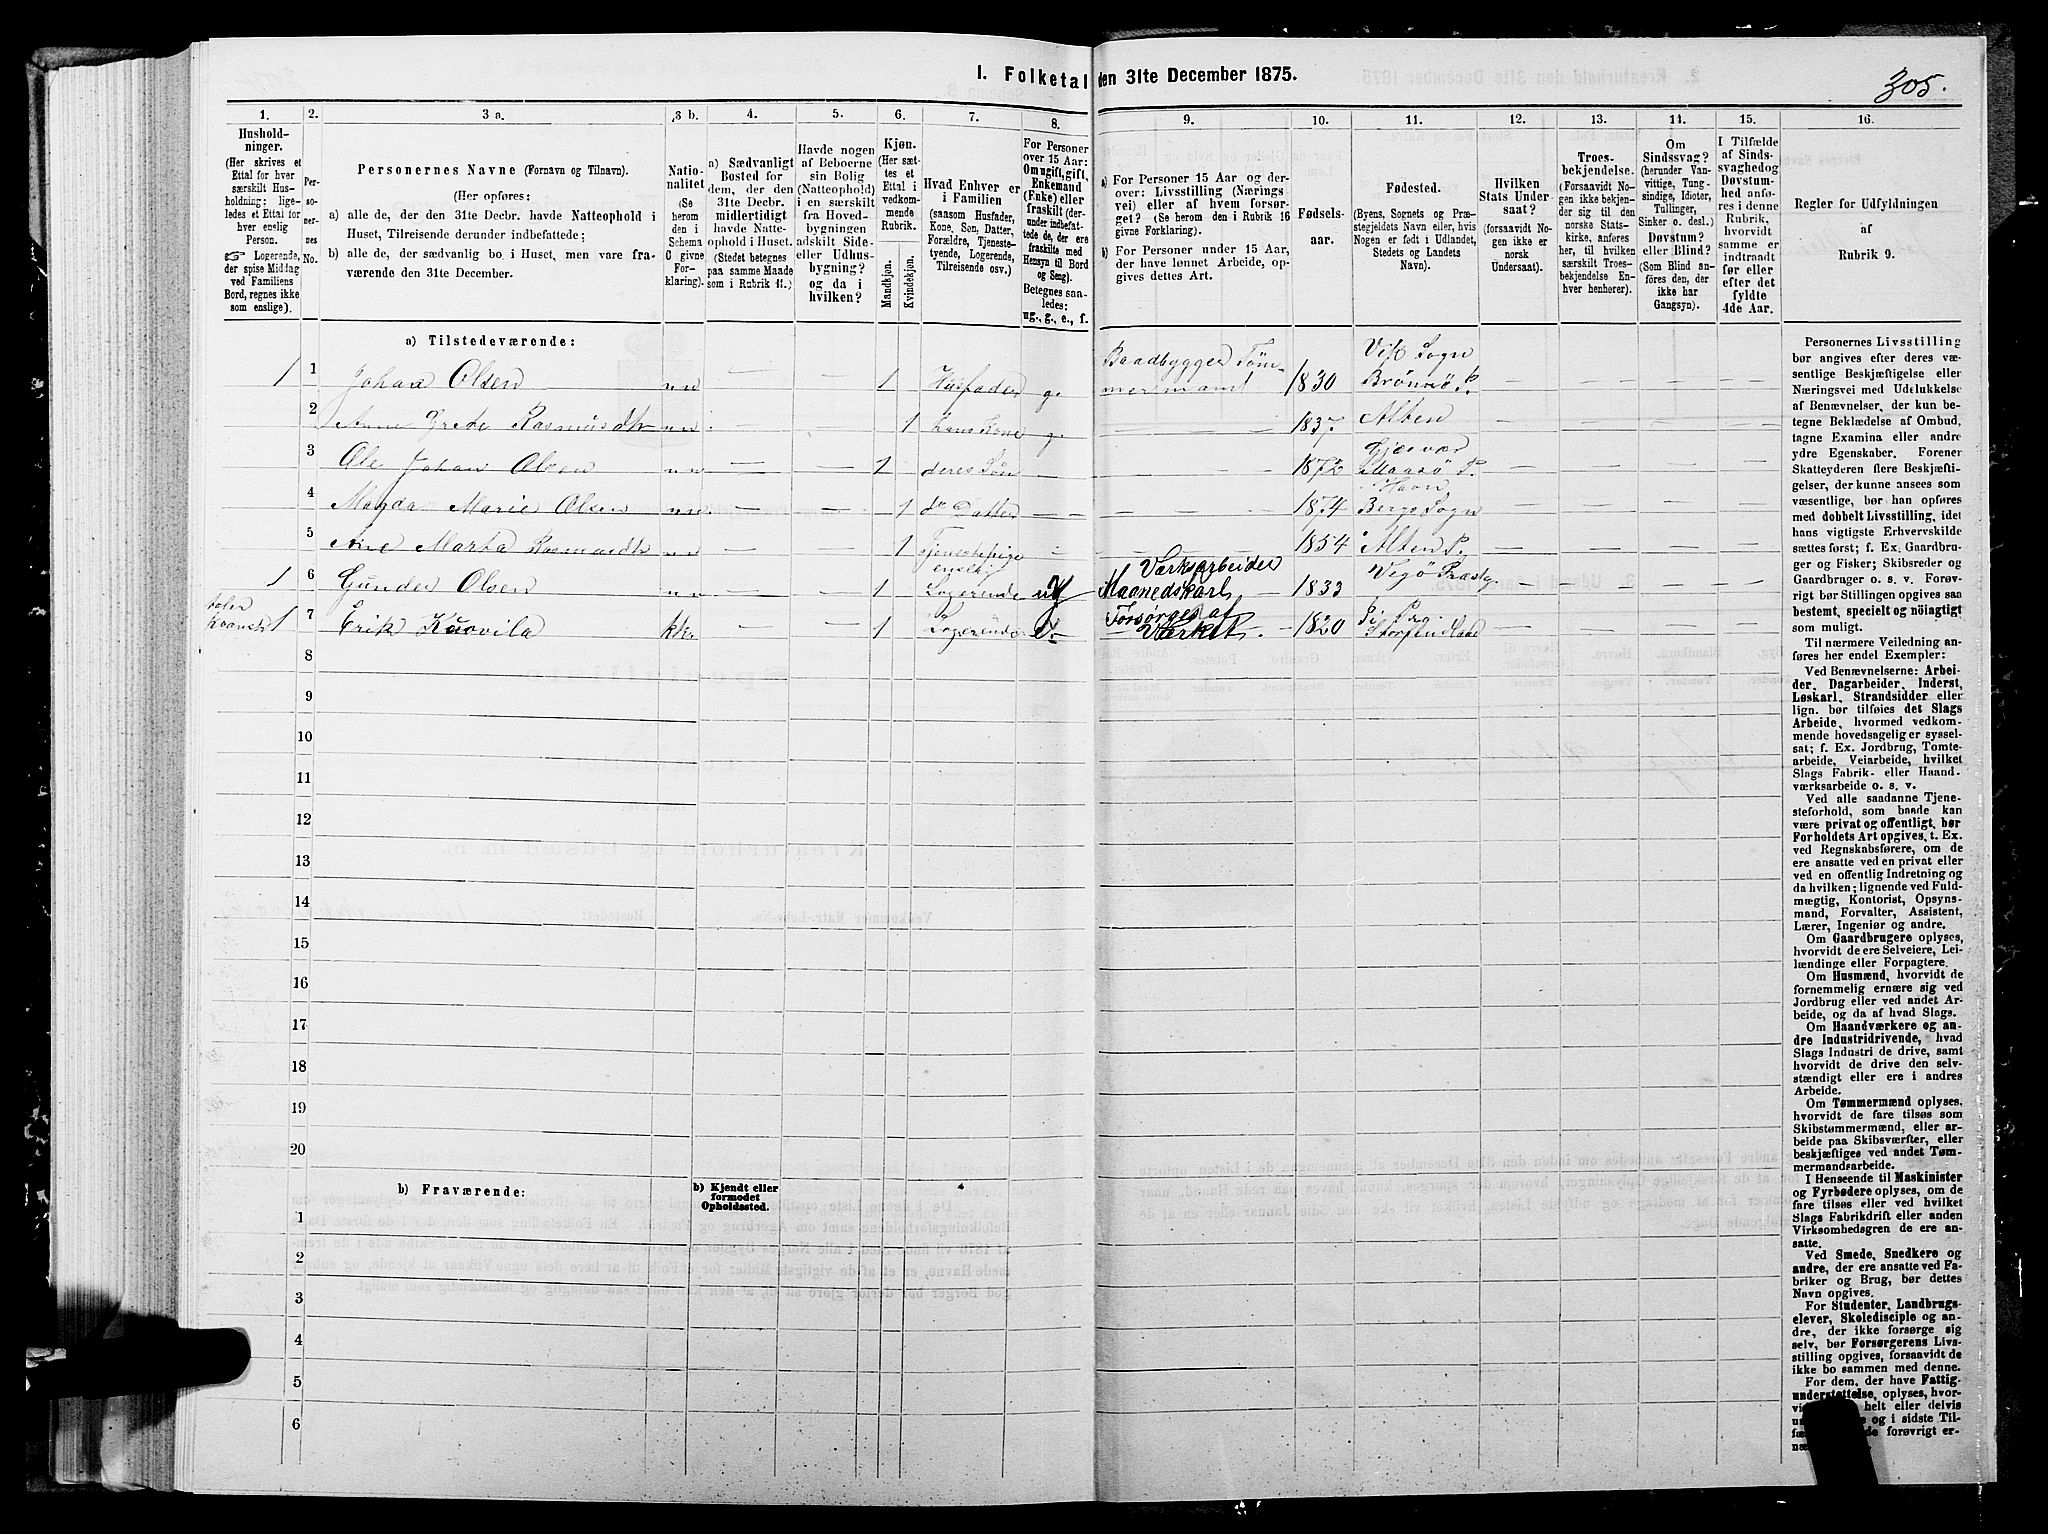 1. Folketal den 31te December 1875.
305.
1. 2. 3 a. 3 b. 4. 5. 6. 7. 8. 9. 10. 11. 12. 13. 14. 15. 16.
Husholdninger.
(Her skrives et Ettal for hver særskilt Husholdning; ligeledes et Ettal for hver enslig Person.
☞ Logerende, der spise Middag ved Familiens Bord, regnes ikke som enslige).
Personernes No.
Personernes Navne (Fornavn og Tilnavn).
(Her opføres:
a) alle de, der den 31te Decbr. havde Natteophold i Huset, Tilreisende derunder indbefattede;
b) alle de, der sædvanlig bo i Huset, men vare fraværende den 31te December.
Nationalitet (Se herom den i Schema C givne Forklaring).
a) Sædvanligt Bosted for dem, der den 31te Decbr. midlertidigt havde Natteophold i Huset. (Stedet betegnes paa samme Maade som i Rubrik 11.)
Havde nogen af Beboerne sin Bolig (Natteophold) i en særskilt fra Hovedbygningen adskilt Side- eller Udhusbygning? og da i hvilken?
Kjøn. (Her sættes et Ettal i vedkommende Rubrik.
Mandkjøn. Kvindekjøn.
Hvad Enhver er i Familien (saasom Husfader, Kone, Søn, Datter, Forældre, Tjenestetyende, Logerende, Tilreisende osv.)
For Personer over 15 Aar: Om ugift, gift, Enkemand (Enke) eller fraskilt (derunder indbefattede de, der ere fraskilte med Hensyn til Bord og Seng). Betegnes saaledes: ug., g., e., f.
a) For Personer 15 Aar og derover: Livsstilling (Næringsvei) eller af hvem forsørget? (Se herom den i Rubrik 16 givne Forklaring).
b) For Personer under 15 Aar, der have lønnet Arbeide, opgives dettes Art.
Fødselsaar.
Fødested.
(Byens, Sognets og Præstegjeldets Navn eller, hvis Nogen er født i Udlandet, Stedets og Landets Navn).
Hvilken Stats Undersaat?
(forsaavidt Nogen ikke er norsk Undersaat).
Troesbekjendelse.
(Forsaavidt Nogen ikke bekjender sig til den norske Statskirke, anføres her, til hvilken særskilt Troesbekjendelse Enhver henhører).
Om Sindssvag? (herunder Vanvittige, Tungsindige, Idioter, Tullinger, Sinker o. desl.) Døvstum? eller Blind? (Som Blind anføres den, der ikke har Gangsyn).
I Tilfælde af Sindssvaghed og Døvstumhed anføres i denne Rubrik, hvorvidt samme er indtraadt før eller efter det fyldte 4de Aar.
Regler for Udfyldningen af Rubrik 9.
a) Tilstedeværende:
1 1 Johan Olsen nn — — 1 Husfader g. Baadbygger Tømmermand 1830 Vik Sogn Brønnø P. — — — —
2 Anne Grete Rasmusdtr nn — — 1 hans Kone g. — 1837 Alten
3 Ole Johan Olsen nn — — 1 deres Søn — 1872 Gjæsvær Maasø P. — — — —
4 Magda Marie Olsen nn — — 1 do Datter — — 1874 Havn Bergs Sogn — — — —
5 Ane Marta nn — — 1 Tjenestepige — 1854 Alten P. — — — —
1 6 Gunder Olsen nn — — 1 enslig Logerende ug Værksarbeider Maanedskarl 1833 Vegø Præstg. — — — —
taler Kvænsk 1 7 Erik Kuovila kkr — — 1 Logerende e. Forsørges af Værket. 1820 — — — —
8
9
10
11
12
13
14
15
16
17
18
19
20
b) Fraværende:
b) Kjendt eller formodet Opholdssted.
1
2
3
4
5
6
Personernes Livsstilling bør angives efter deres væsentlige Beskjæftigelse eller Næringsvei med Udelukkelse af Benævnelser, der kun betegne Beklædelse af Ombud, tagne Examina eller andre ydre Egenskaber. Forener Skatteyderen flere Beskjæftigelser, der kunne ansees som væsentlige, bør han opføres med dobbelt Livsstilling, idet hans vigtigste Erhvervskilde sættes først; f. Ex. Gaardbruger og Fisker; Skibsreder og Gaardbruger o. s. v. Forøvrigt bør Stillingen opgives saa bestemt, specielt og nöiagtigt som muligt.
Til nærmere Veiledning anføres her endel Exempler:
Ved Benævnelserne: Arbeider, Dagarbeider, Inderst, Løskarl, Strandsidder eller lign. bør tilføies det Slags Arbeide, hvormed vedkommende hovedsagelig er sysselsat; f. Ex. Jordbrug, Tomtearbeide, Veiarbeide, hvilket Slags Fabrik- eller Haandværksarbeide o. s. v.
Ved alle saadanne Tjenesteforhold, som baade kan være privat og offentligt, bør Forholdets Art opgives, t. Ex. ved Regnskabsførere, om de ere ansatte ved en privat eller ved en offentlig Indretning og da hvilken; lignende ved Fuldmægtig, Kontorist, Opsynsmand, Forvalter, Assistent, Lærer, Ingeniør og andre.
Om Gaardbrugere oplyses, hvorvidt de ere Selveiere, Leilændinge eller Forpagtere.
Om Husmænd, hvorvidt de fornemmelig ernære sig ved Jordbrug eller ved andet Arbeide, og da af hvad Slags.
Om Haandværkere og andre Industridrivende, hvad Slags Industri de drive, samt hvorvidt de drive den selvstændigt eller ere i andres Arbeide.
Om Tømmermænd oplyses, hvorvidt de fare tilsøs som Skibstømmermænd, eller arbeide paa Skibsværfter, eller beskjæftiges ved andet Tømmermandsarbeide.
I Henseende til Maskinister og Fyrbødere oplyses, om de fare tilsøs eller ved hvilket Slags Fabrikdrift eller anden Virksomhedsgren de ere ansatte.
Ved Smede, Snedkere og andre, der ere ansatte ved Fabriker og Brug, bør dettes Navn opgives.
For Studenter, Landbrugselever, Skoledisciple og andre, der ikke forsørge sig selv, bør Forsørgerens Livsstilling opgives, forsaavidt de ikke bo sammen med denne.
For dem, der have Fattigunderstøttelse, oplyses, hvor
helt eller delvis
og i sidste Til
forøvrigt er